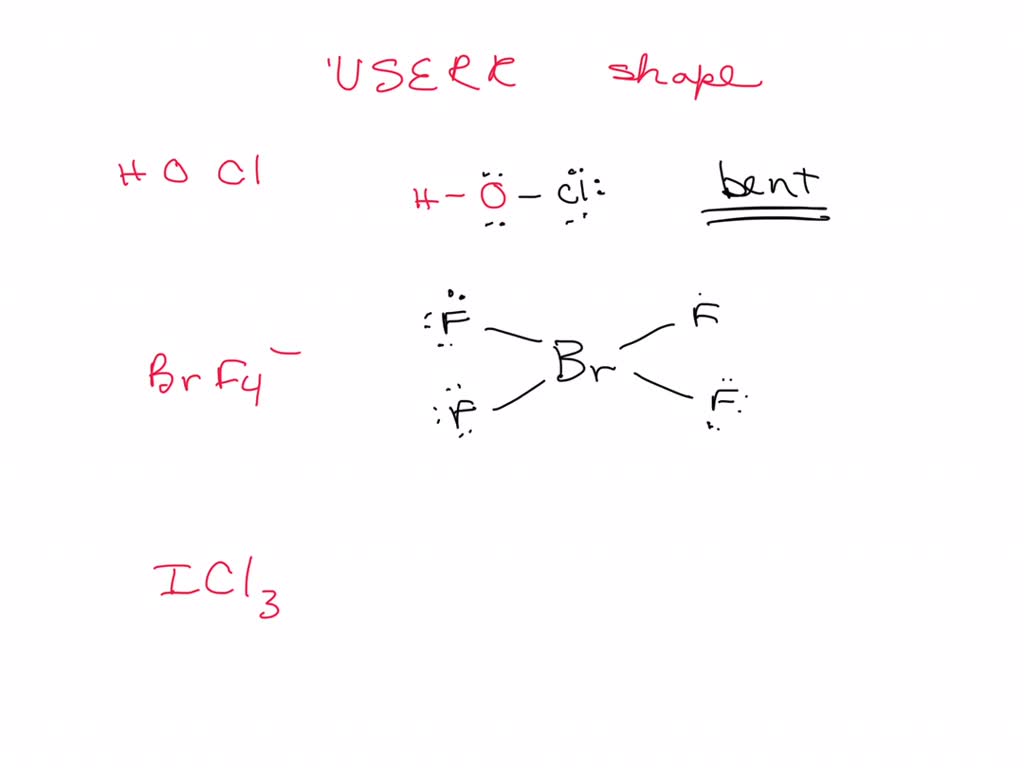 VSEPR shape
HOCl H-O-Cl: bent
BrF4⁻ :F Br F
:F F:
ICl3